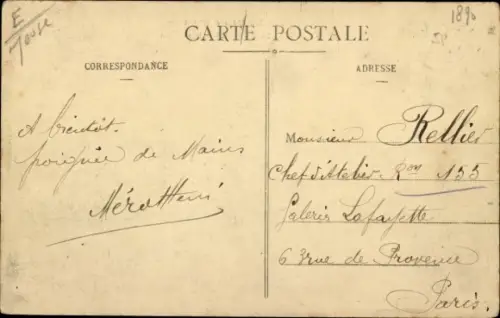 E
1890
CARTE POSTALE
CORRESPONDANCE
ADRESSE
A bientôt.
poignée de Mains
Monsieur Rellier
Chef d'Atelier Ron 155
Galeris Lafayette
63 rue de Provence
Paris.